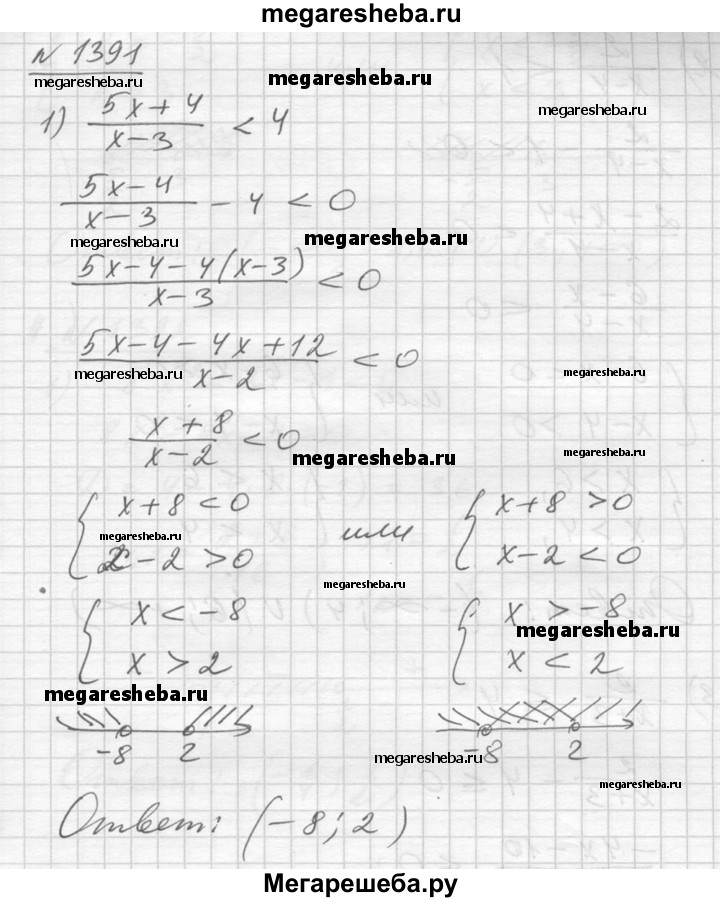 megaresheba.ru
№ 1391
megaresheba.ru megaresheba.ru megaresheba.ru
1) (5x+4)/(x-3) < 4
(5x-4)/(x-3) - 4 < 0
megaresheba.ru megaresheba.ru
(5x-4-4(x-3))/(x-3) < 0
(5x-4-4x+12)/(x-2) < 0
megaresheba.ru megaresheba.ru
(x+8)/(x-2) < 0
megaresheba.ru megaresheba.ru
{ x+8 < 0 или { x+8 > 0
megaresheba.ru
x-2 > 0 x-2 < 0
megaresheba.ru
{ x < -8 { x > -8
megaresheba.ru
x > 2 x < 2
megaresheba.ru megaresheba.ru
-8 2 -8 2
megaresheba.ru
megaresheba.ru
Ответ: (-8; 2)
Мегарешеба.ру